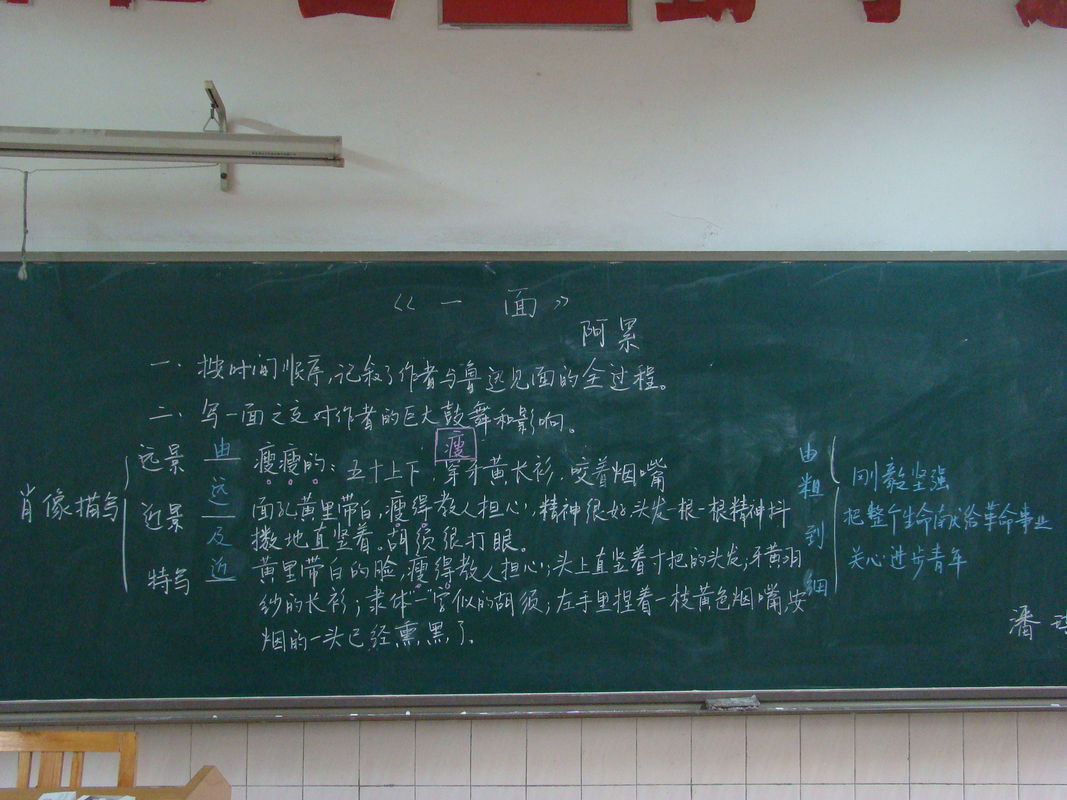 《一面》
阿累
一、按时间顺序,记叙了作者与鲁迅见面的全过程。
二、写一面之交对作者的巨大鼓舞和影响。
瘦
肖像描写
远景
近景
特写
由远及近
瘦瘦的:五十上下,穿牙黄长衫,咬着烟嘴
面孔黄里带白,瘦得教人担心,精神很好头发一根一根精神抖
擞地直竖着。胡须很打眼。
黄里带白的脸,瘦得教人担心;头上直竖着寸把的头发;牙黄羽
纱的长衫;隶体"一"字似的胡须;左手里捏着一枝黄色烟嘴,安
烟的一头已经熏黑了。
由粗到细
刚毅坚强
把整个生命献给革命事业
关心进步青年
潘